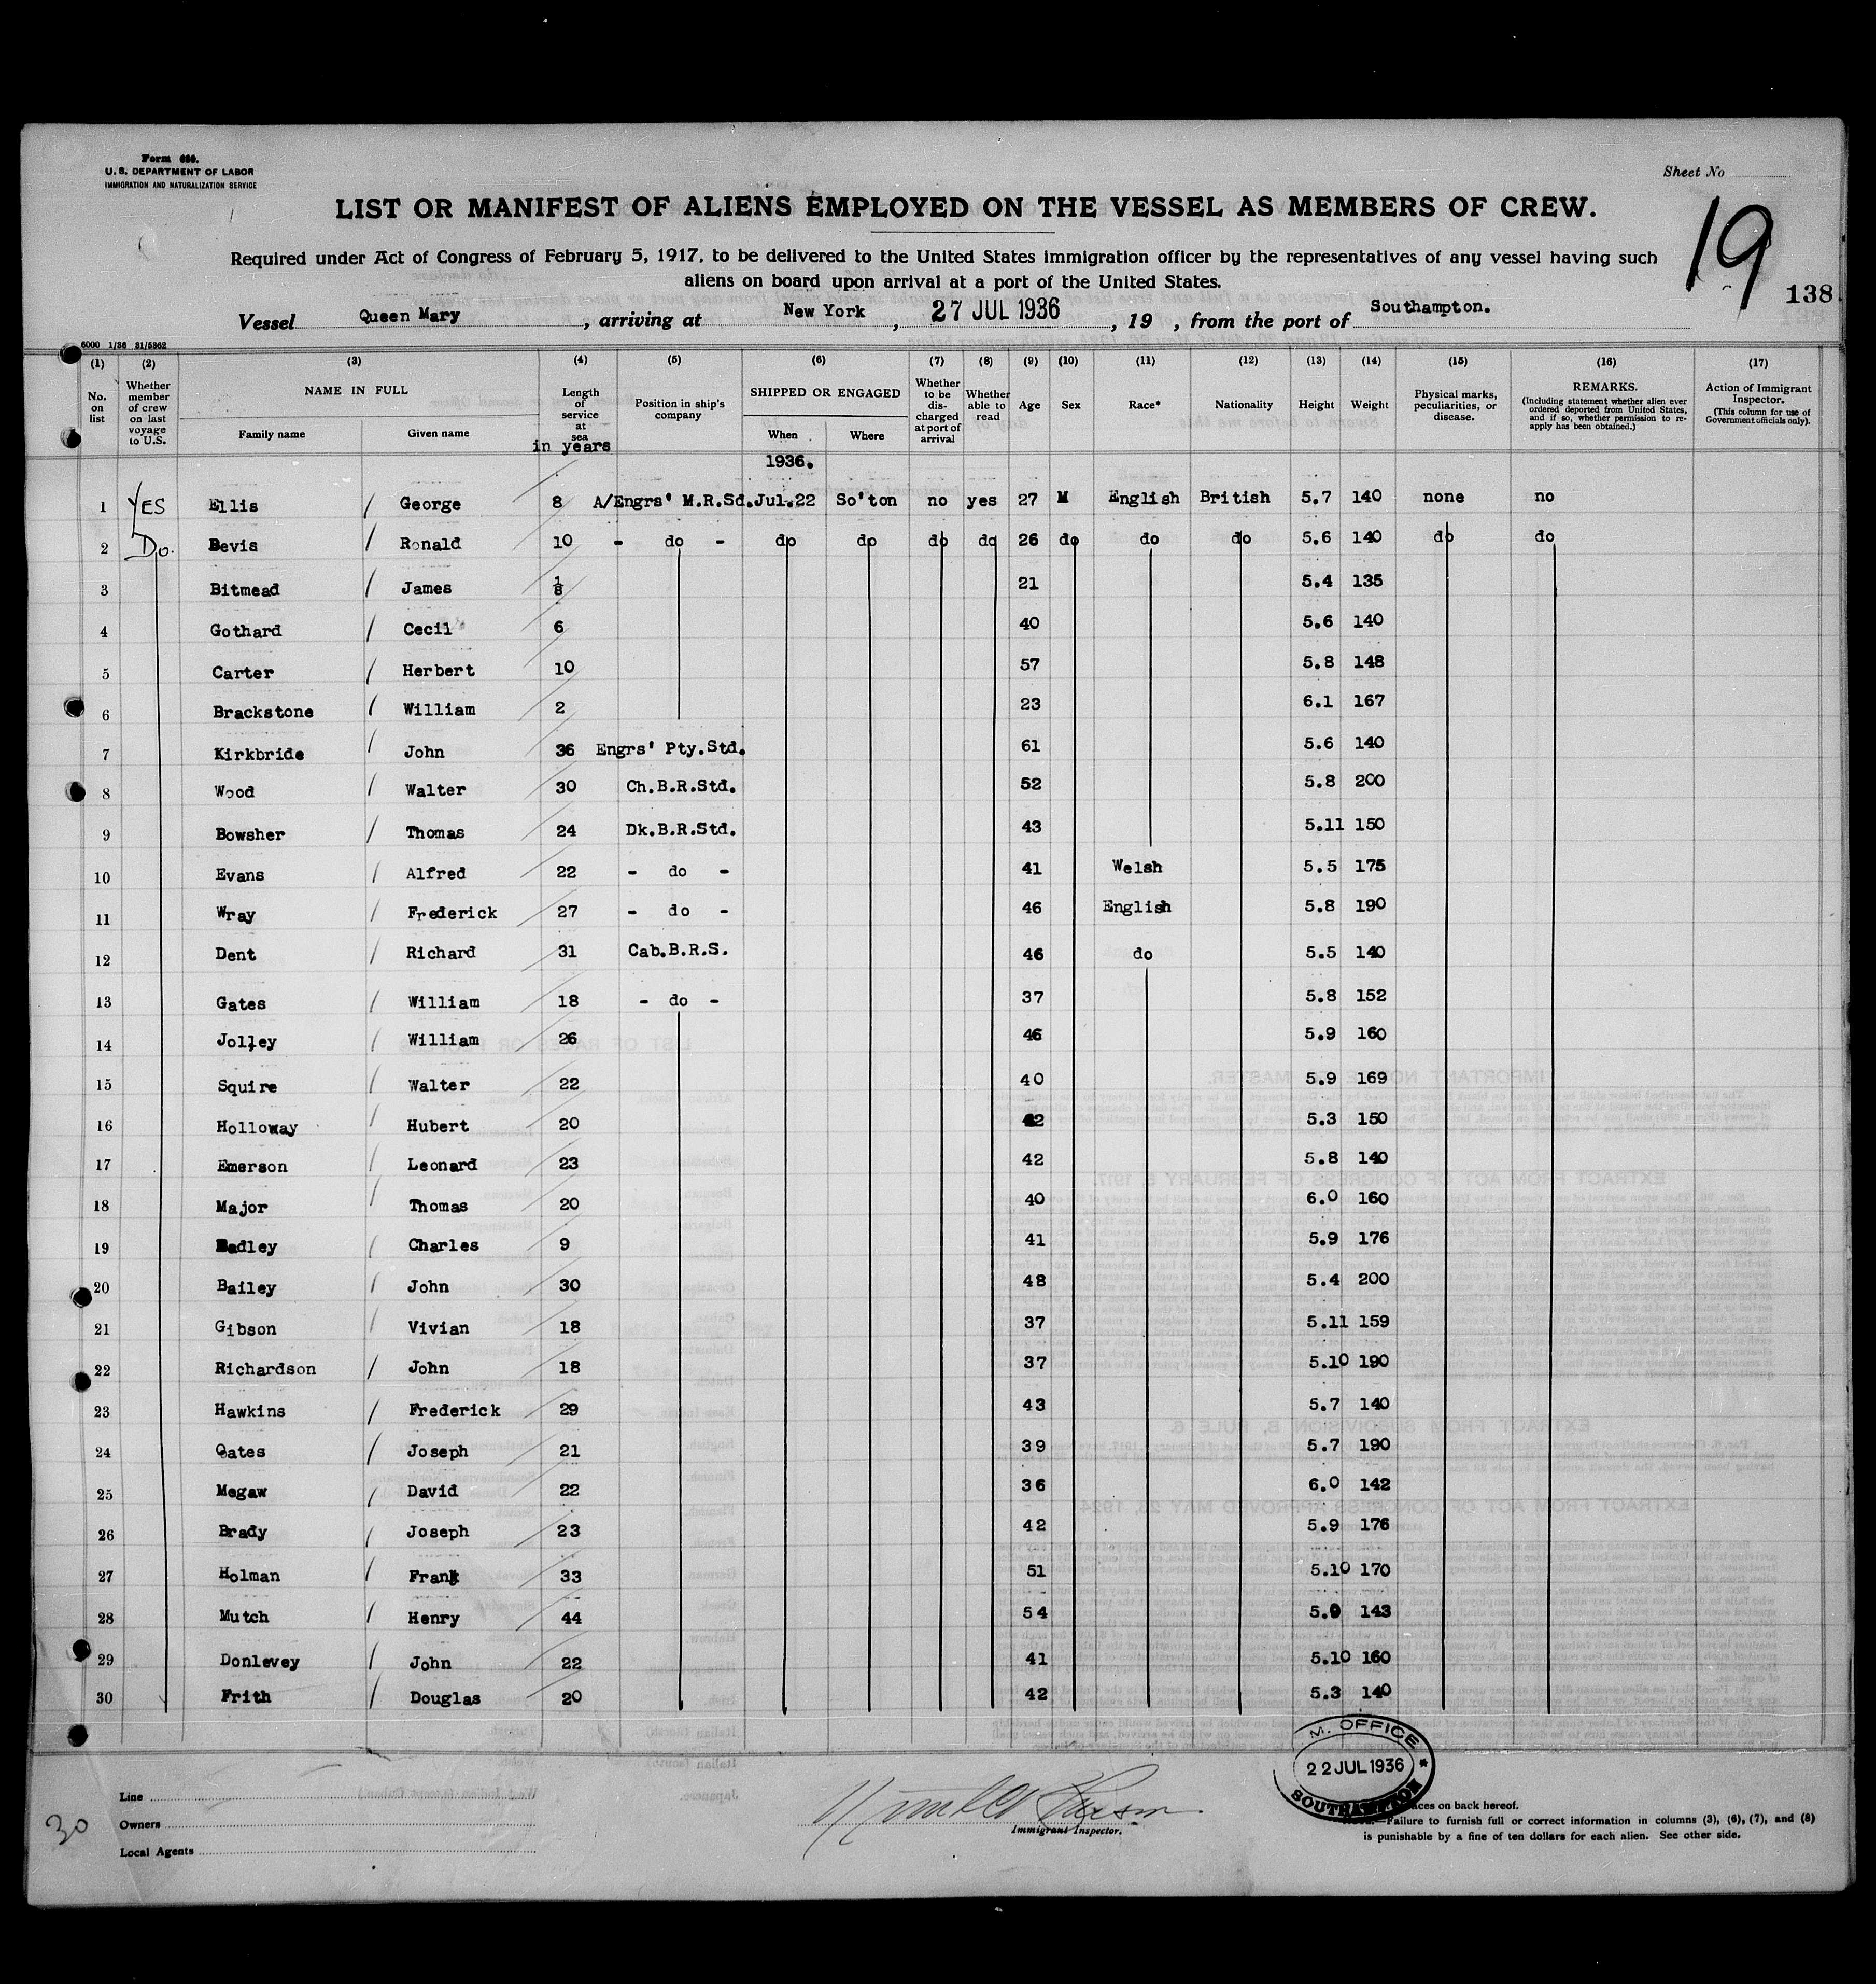 Form 680.
U. S. DEPARTMENT OF LABOR
IMMIGRATION AND NATURALIZATION SERVICE
Sheet No
LIST OR MANIFEST OF ALIENS EMPLOYED ON THE VESSEL AS MEMBERS OF CREW.
19
Required under Act of Congress of February 5, 1917, to be delivered to the United States immigration officer by the representatives of any vessel having such
aliens on board upon arrival at a port of the United States.
138
Vessel Queen Mary, arriving at New York, 27 JUL 1936, 19 , from the port of Southampton.
6000 1/36 31/5362
(1) (2) (3) (4) (5) (6) (7) (8) (9) (10) (11) (12) (13) (14) (15) (16) (17)
No. on list
Whether member of crew on last voyage to U.S.
NAME IN FULL
Family name Given name
Length of service at sea
in years
Position in ship's company
SHIPPED OR ENGAGED
When Where
1936.
Whether to be discharged at port of arrival
Whether able to read
Age
Sex
Race*
Nationality
Height
Weight
Physical marks, peculiarities, or disease.
REMARKS.
(Including statement whether alien ever ordered deported from United States, and if so, whether permission to re-apply has been obtained.)
Action of Immigrant Inspector.
(This column for use of Government officials only).
1 YES Ellis George 8 A/Engrs' M.R.Sd. Jul.22 So'ton no yes 27 M English British 5.7 140 none no
2 Do. Bevis Ronald 10 - do - do do do do 26 do do do 5.6 140 do do
3 Bitmead James 1/8 21 5.4 135
4 Gothard Cecil 6 40 5.6 140
5 Carter Herbert 10 57 5.8 148
6 Brackstone William 2 23 6.1 167
7 Kirkbride John 36 Engrs' Pty.Std. 61 5.6 140
8 Wood Walter 30 Ch.B.R.Std. 52 5.8 200
9 Bowsher Thomas 24 Dk.B.R.Std. 43 5.11 150
10 Evans Alfred 22 - do - 41 Welsh 5.5 175
11 Wray Frederick 27 - do - 46 English 5.8 190
12 Dent Richard 31 Cab.B.R.S. 46 do 5.5 140
13 Gates William 18 - do - 37 5.8 152
14 Jolley William 26 46 5.9 160
15 Squire Walter 22 40 5.9 169
16 Holloway Hubert 20 42 5.3 150
17 Emerson Leonard 23 42 5.8 140
18 Major Thomas 20 40 6.0 160
19 Badley Charles 9 41 5.9 176
20 Bailey John 30 48 5.4 200
21 Gibson Vivian 18 37 5.11 159
22 Richardson John 18 37 5.10 190
23 Hawkins Frederick 29 43 5.7 140
24 Oates Joseph 21 39 5.7 190
25 Megaw David 22 36 6.0 142
26 Brady Joseph 23 42 5.9 176
27 Holman Frank 33 51 5.10 170
28 Mutch Henry 44 54 5.9 143
29 Donlevey John 22 41 5.10 160
30 Frith Douglas 20 42 5.3 140
M. OFFICE
22 JUL 1936
SOUTHAMPTON
30
Line
Owners
Local Agents
Immigrant Inspector.
races on back hereof.
—Failure to furnish full or correct information in columns (3), (6), (7), and (8)
is punishable by a fine of ten dollars for each alien. See other side.